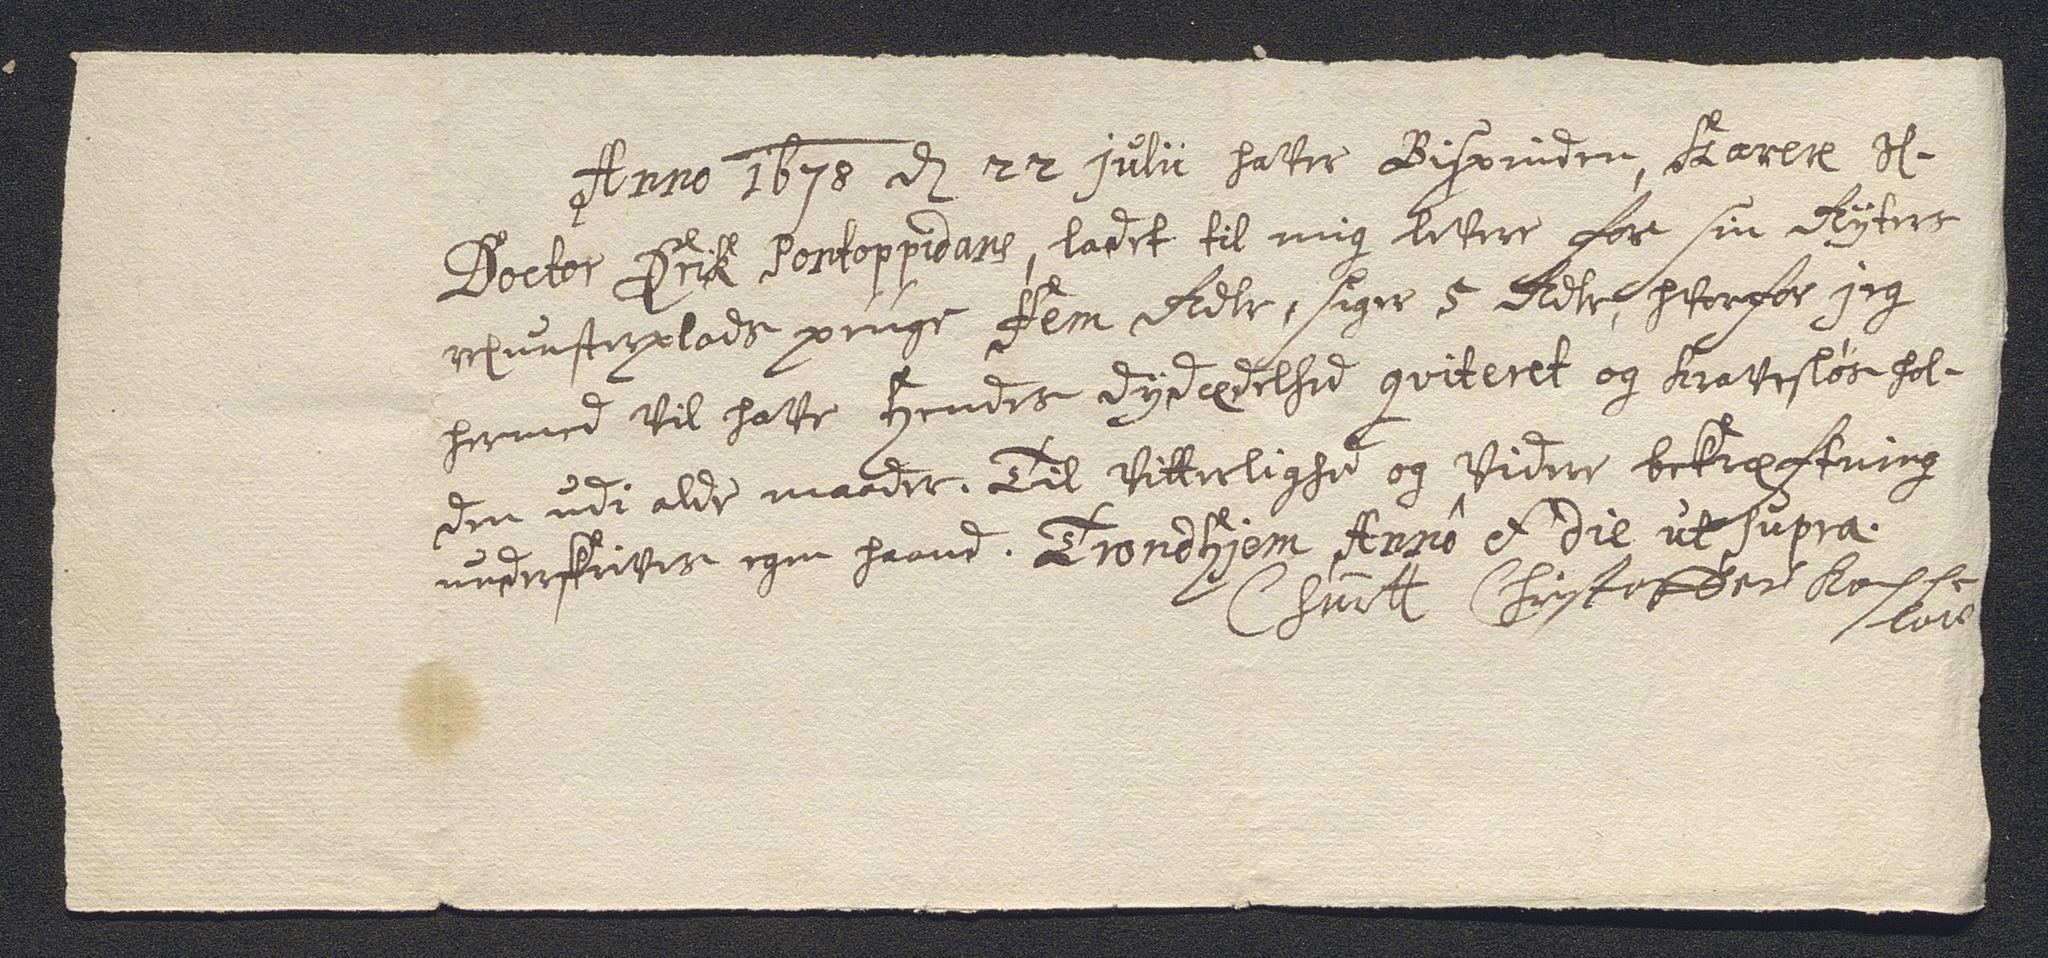 Anno 1678 dn 22 julii hafver Bispinden, Karen H-
Doctor Erik Pontoppidans, ladet til mig levere for sin Rÿters
munsterplads penge Fem Rdlr, siger 5 Rdlr, hvorfor jeg
hermed vil hafve Hendes dÿdædelhed qviteret og Kravesløs hol-
den udi alde maader. Til Vitterlighed og Videre bekræftning
underskrives egen haand. Trondhjem Annô et die ut supra.
Churtt Christoffer